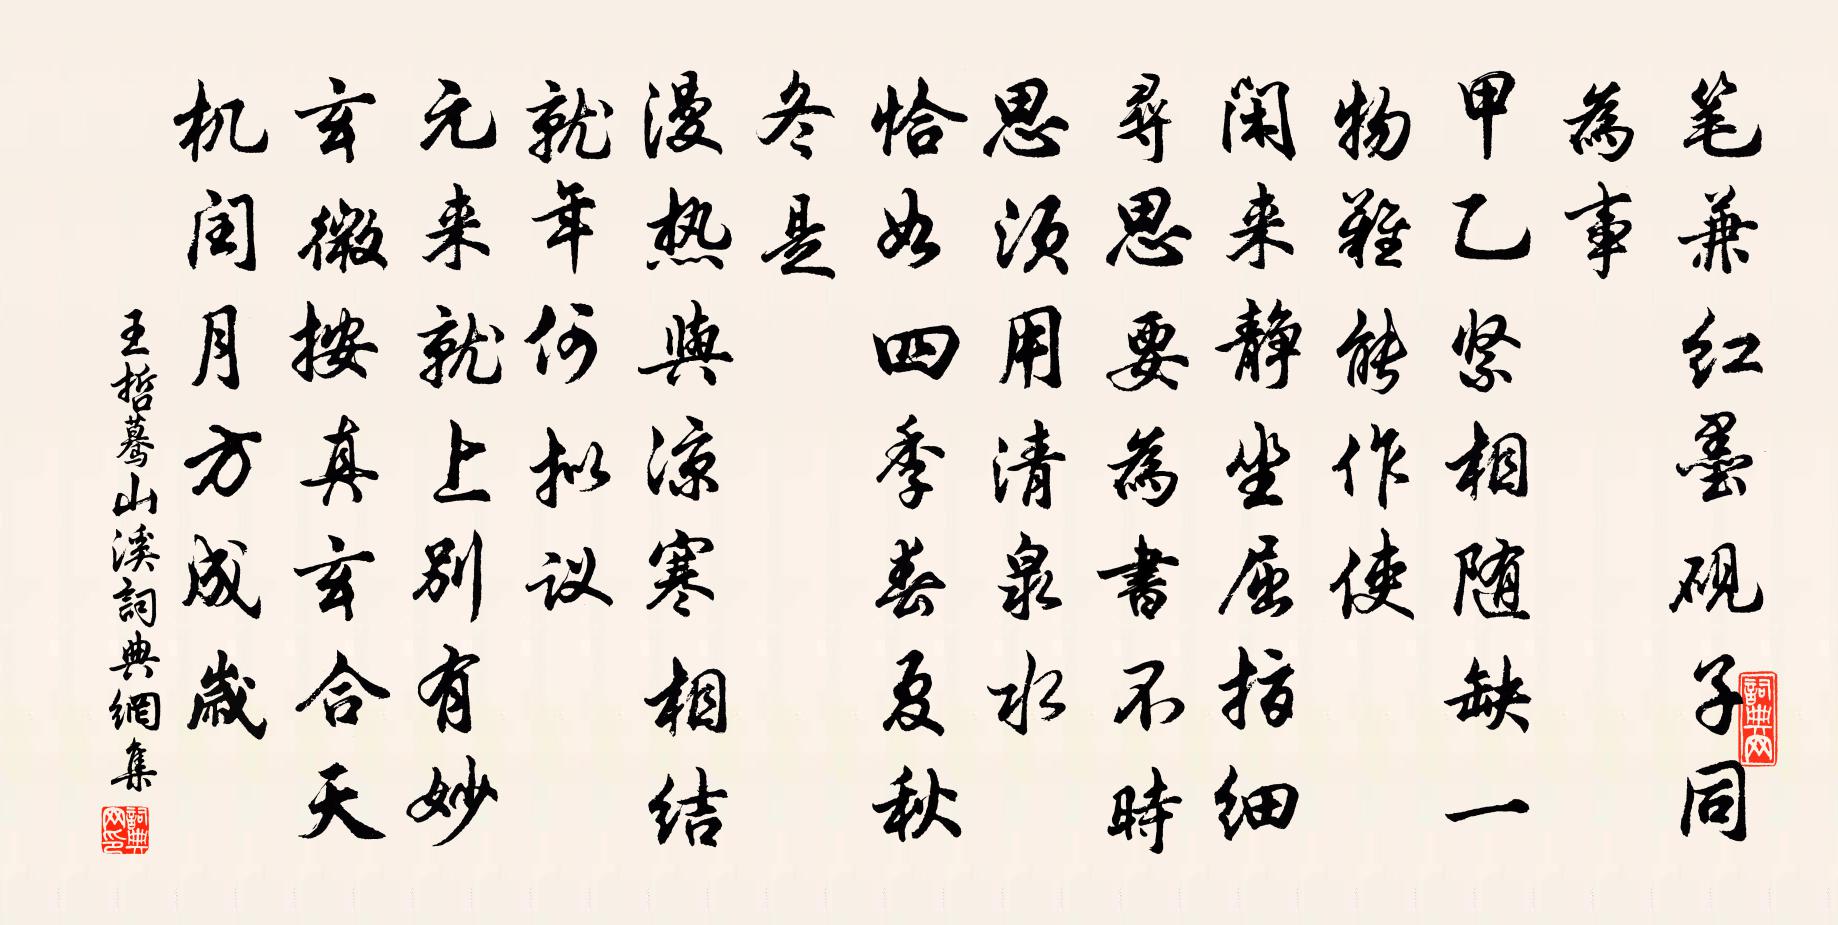 笔兼红墨砚子同
為事
甲乙紧相随缺一
物難能作使
闲来静坐屈指细
尋思要為書不時
思须用清泉水
恰如四季春夏秋
冬是
漫热與涼寒相结
就年何拟议
元来就上别有妙
玄微按真玄合天
机闰月方成歲
王哲蓦山溪詞典網集
詞典网
詞典网印